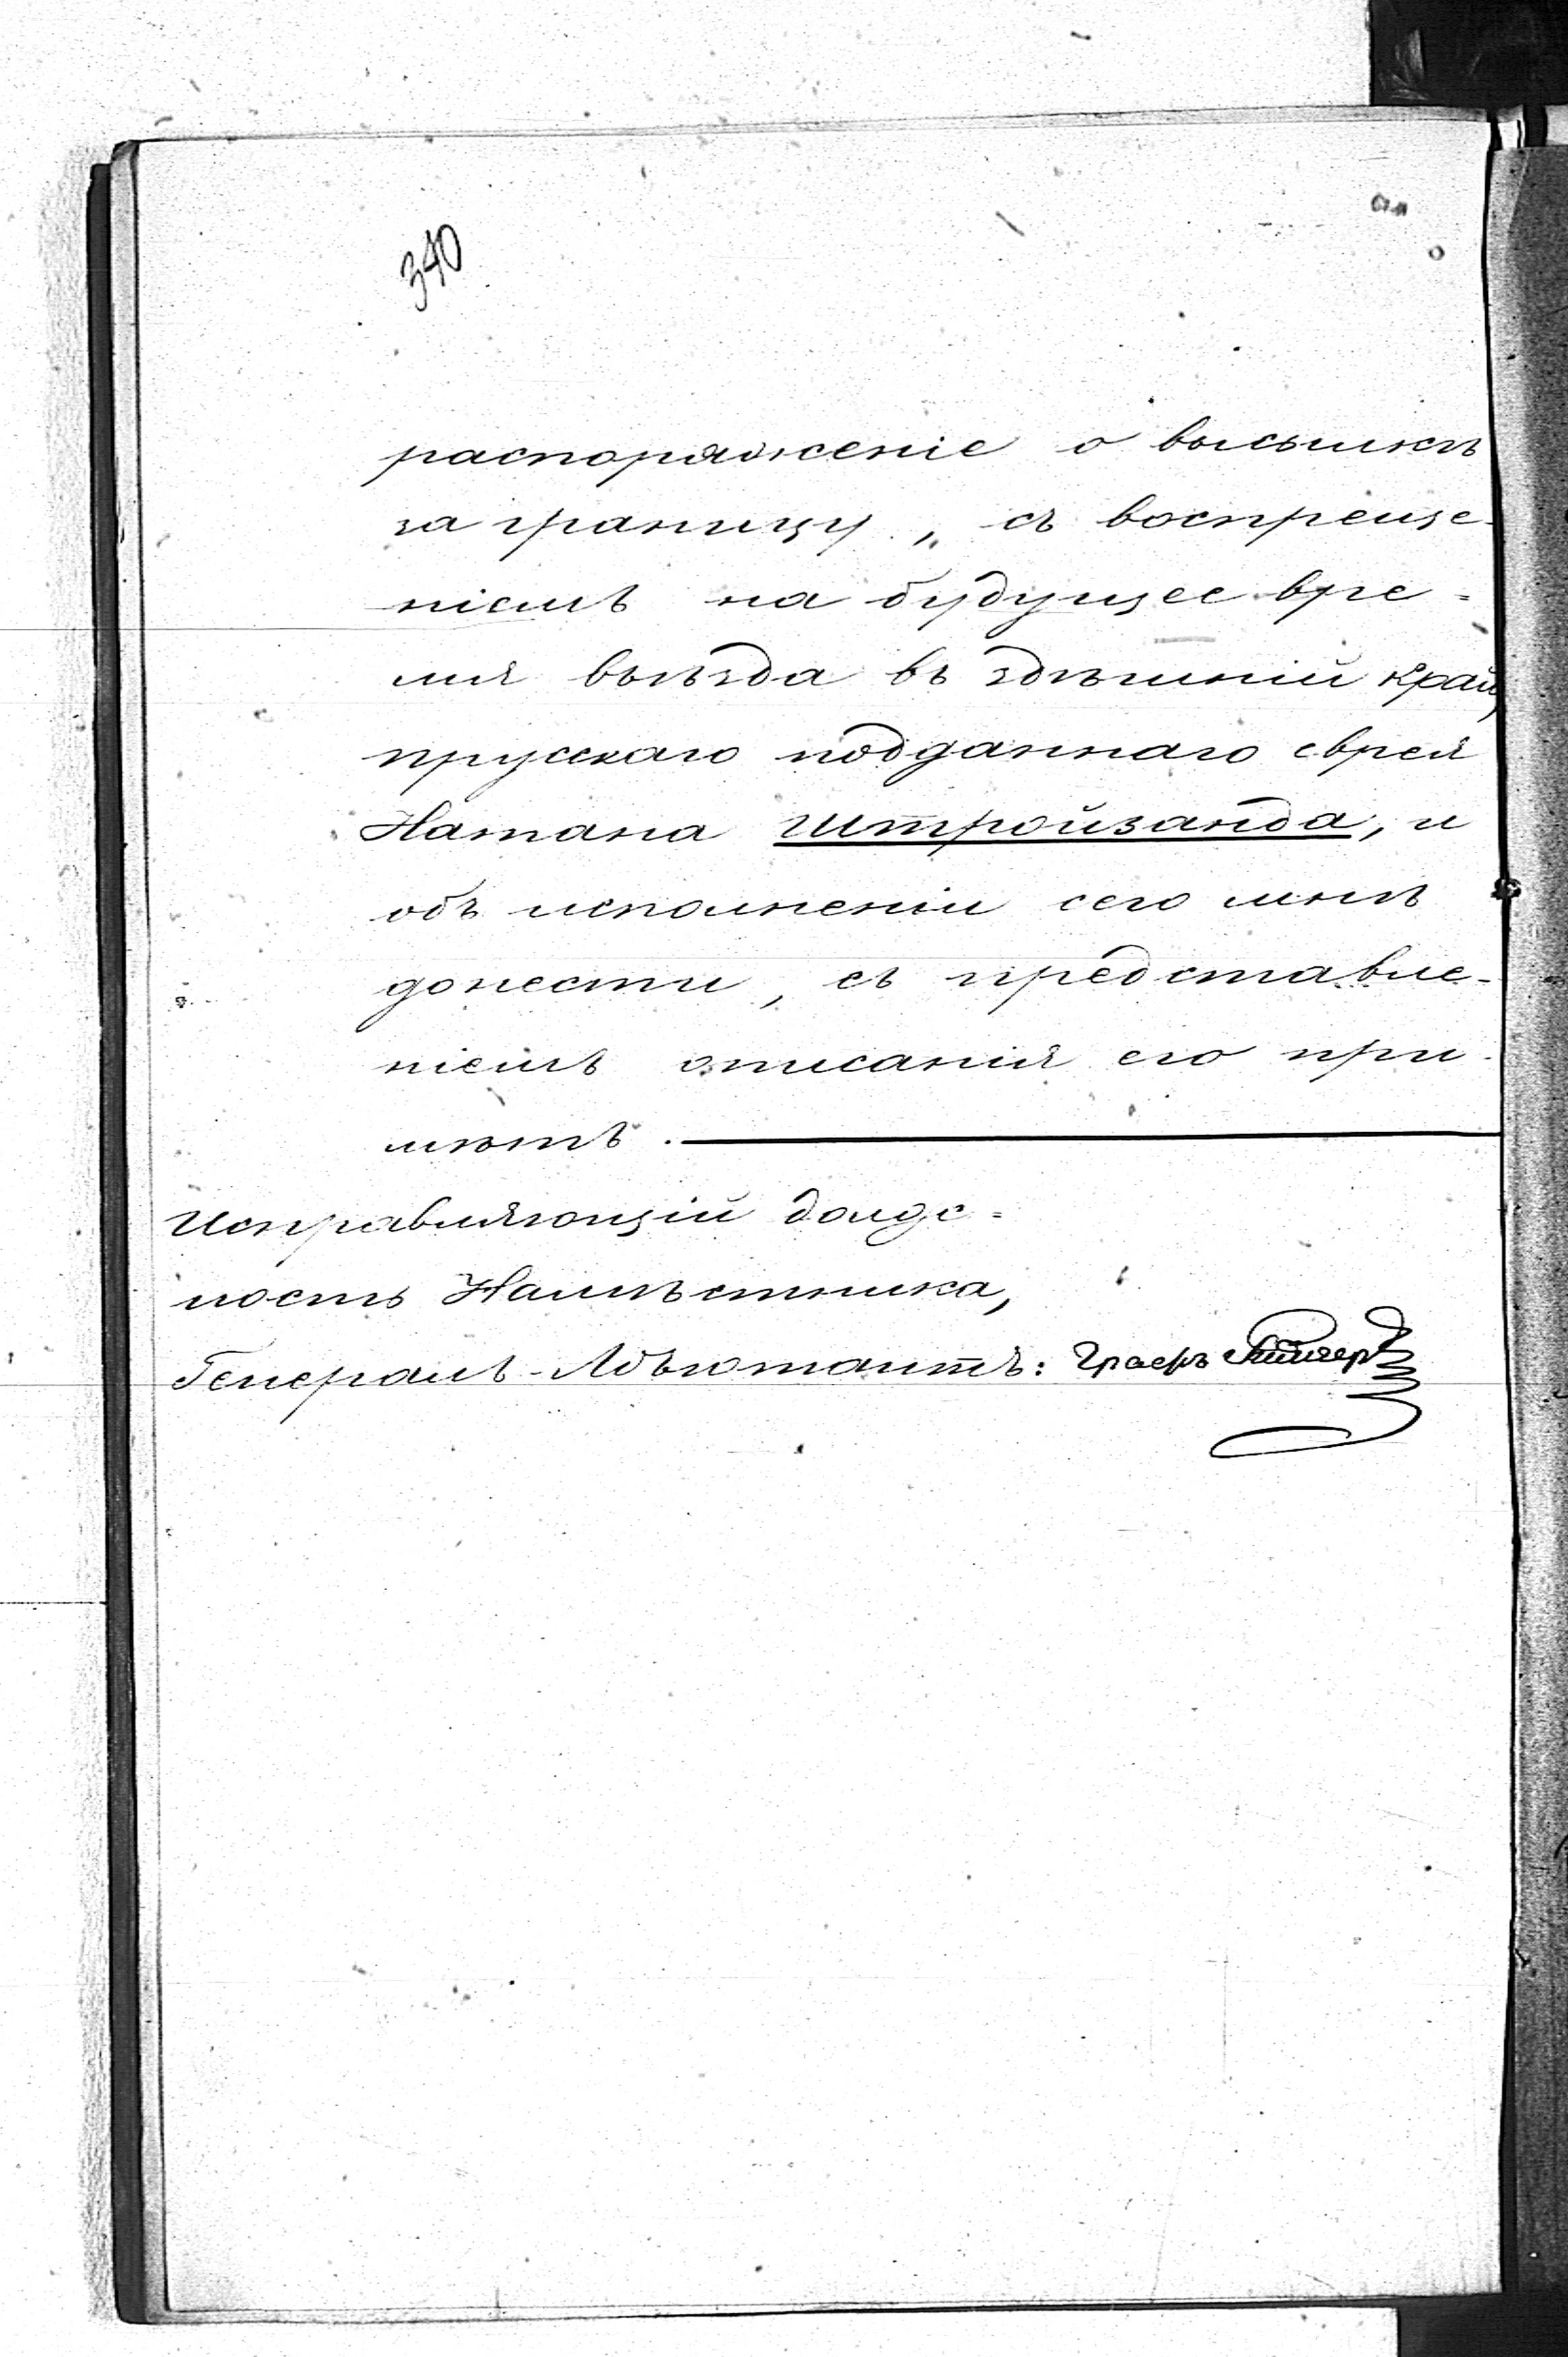 340
распоряженіе о высылкѣ
за границу, съ воспреще-
ніемъ на будущее вре=
мя въѣзда въ здѣшній край,
прусскаго подданнаго еврея
Натана Штройзанда, и
объ исполненіи сего мнѣ
донести, съ представле-
ніемъ описанія его при-
мѣтъ.
Исправляющій долж=
ность Намѣстника,
Генералъ-Адъютантъ: Графъ